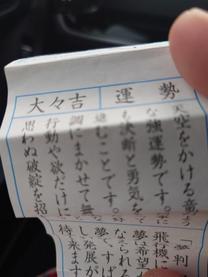 大々吉
運勢
天空をかける竜
な強運勢です。
も決断と勇気を
進むことです。
調にまかせて無
行動や欲だけに
思わぬ破綻を招
夢判
飛行機に
夢は希望
なえられる
夢で、すば
し発展が
来ます